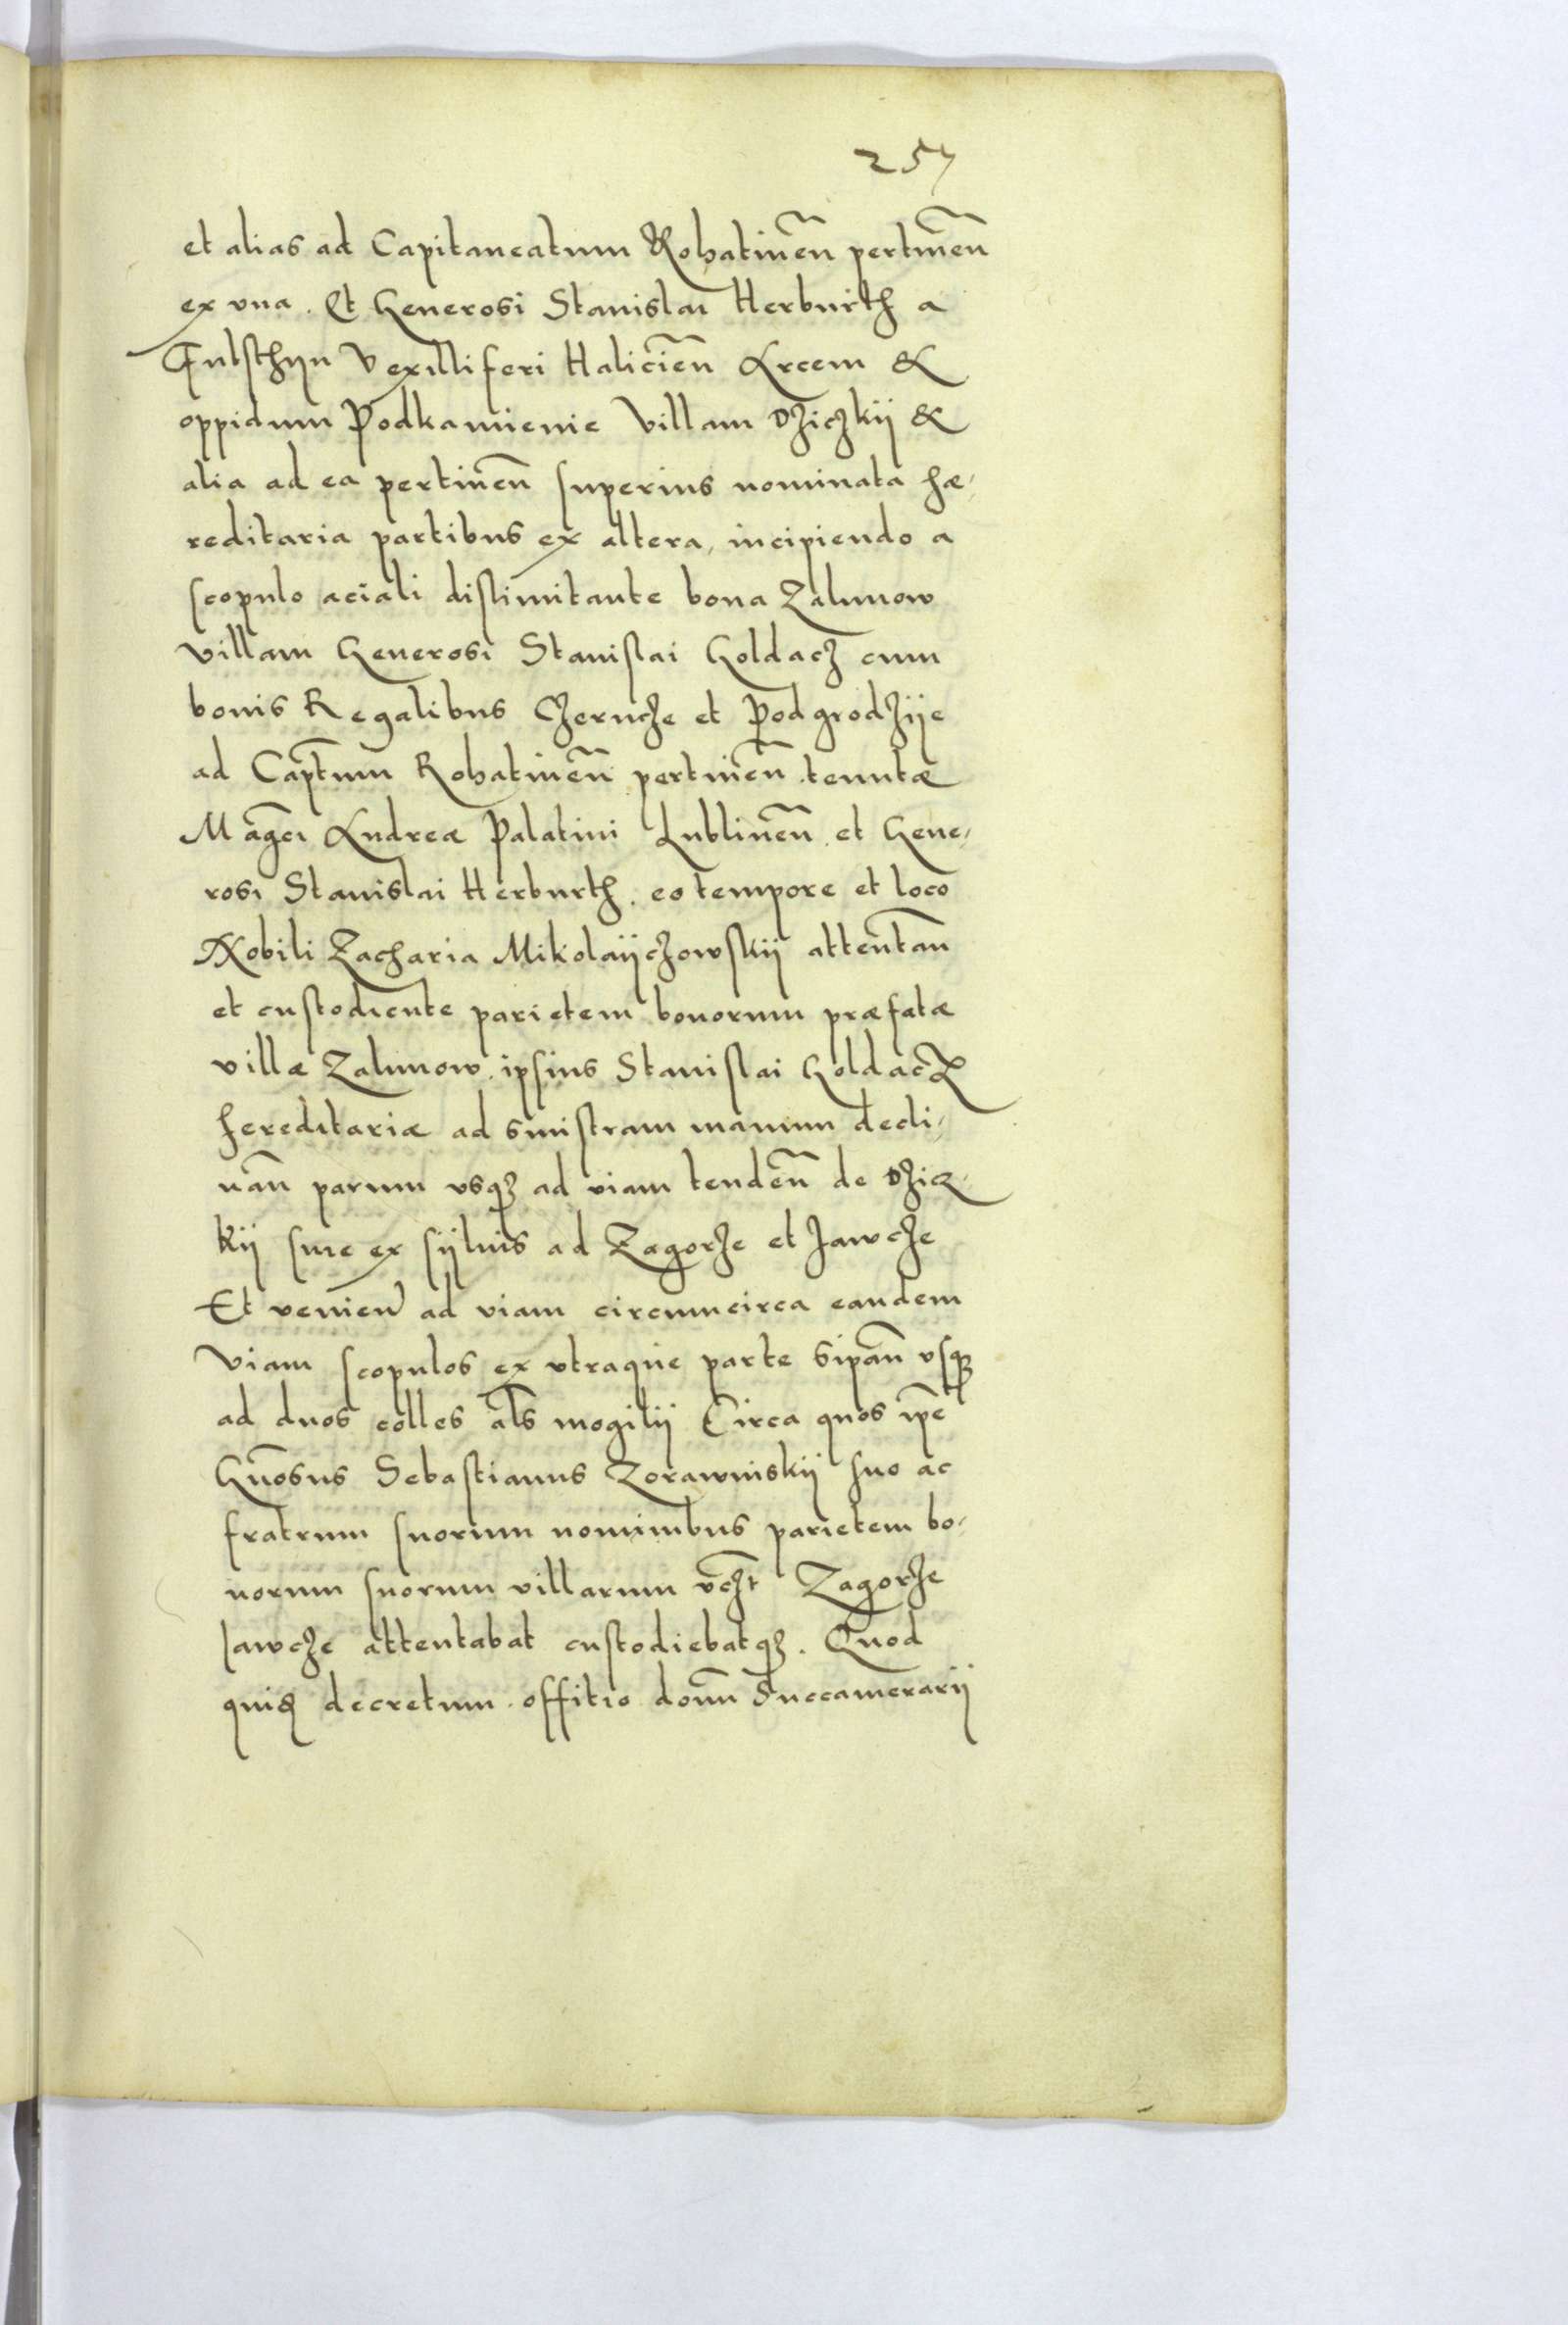 257
et alias ad Capitaneatum Rohatinen̄ pertinen̄
ex vna. Et Generosi Stanislai Herburth a
Fulsthyn Vexilliferi Halicien̄ Arcem &
oppidum Podkamienie Villam Dziczkij &
alia ad ea pertinen̄ superius nominata hæ-
reditaria partibus ex altera, incipiendo a
scopulo aciali dislimitante bona Zalunow
villam Generosi Stanislai Goldacz cum
bonis Regalibus Czercze et Podgrodzije
ad Captum̄ Rohatinen̄ pertinen̄ tenutæ
Magci Andreæ Palatini Lublinen̄. et Gene-
rosi Stanislai Herburth. eo tempore et loco
Nobili Zacharia Mikolaijczowskij attentan̄
et custodiente parietem bonorum præfatæ
villæ Zalunow. ipsius Stanislai Goldacz
hereditariæ ad sinistram manum decli-
nan̄ parum vsq3 ad viam tenden̄ de Dzicz-
kij siue ex sijluis ad Zagorze et Jawcze
Et venien̄ ad viam circumcirca eandem
Viam scopulos ex vtraque parte sipan̄ vsq3
ad duos colles al̄s mogilij Circa quos ip̄e
Gn̄osus Sebastianus Zorawinskij suo ac
fratrum suorum nominibus parietem bo-
norum suorum villarum vcz̄t Zagorze
Jawcze attentabat custodiebatq3. Quod
quid decretum. offitio domn̄ Succamerarij